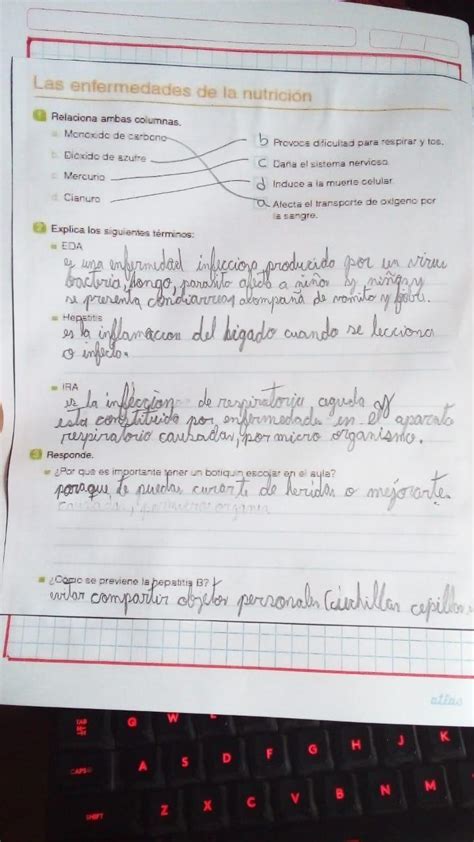 Las enfermedades de la nutrición
1 Relaciona ambas columnas.
a. Monóxido de carbono
b Provoca dificultad para respirar y tos.
b. Dióxido de azufre
c Daña el sistema nervioso.
c. Mercurio
d Induce a la muerte celular.
d. Cianuro
a Afecta el transporte de oxígeno por
la sangre.
2 Explica los siguientes términos:
EDA
es una enfermidad infecciosa producido por un virus
bacteria, hongo, parasito afecta a niños y niñas y
se presenta con diarreas acompaña de vomito y
Hepatitis
es la inflamacion del higado cuando se lecciona
o infecta.
IRA
es la infeccion de respiratoria aguda y
esta constituida por enfermedades en el aparato
respiratorio causadas, por micro organismo.
3 Responde.
¿Por qué es importante tener un botiquín escolar en el aula?
paraque te puedas curarte de heridas o mejorarte.
¿Cómo se previene la hepatitis B?
evitar compartir objetos personales (cuchillas cepillos
atlas
Q W
A S D F G H J K
Z X C V B N M
CAPS
SHIFT
TAB